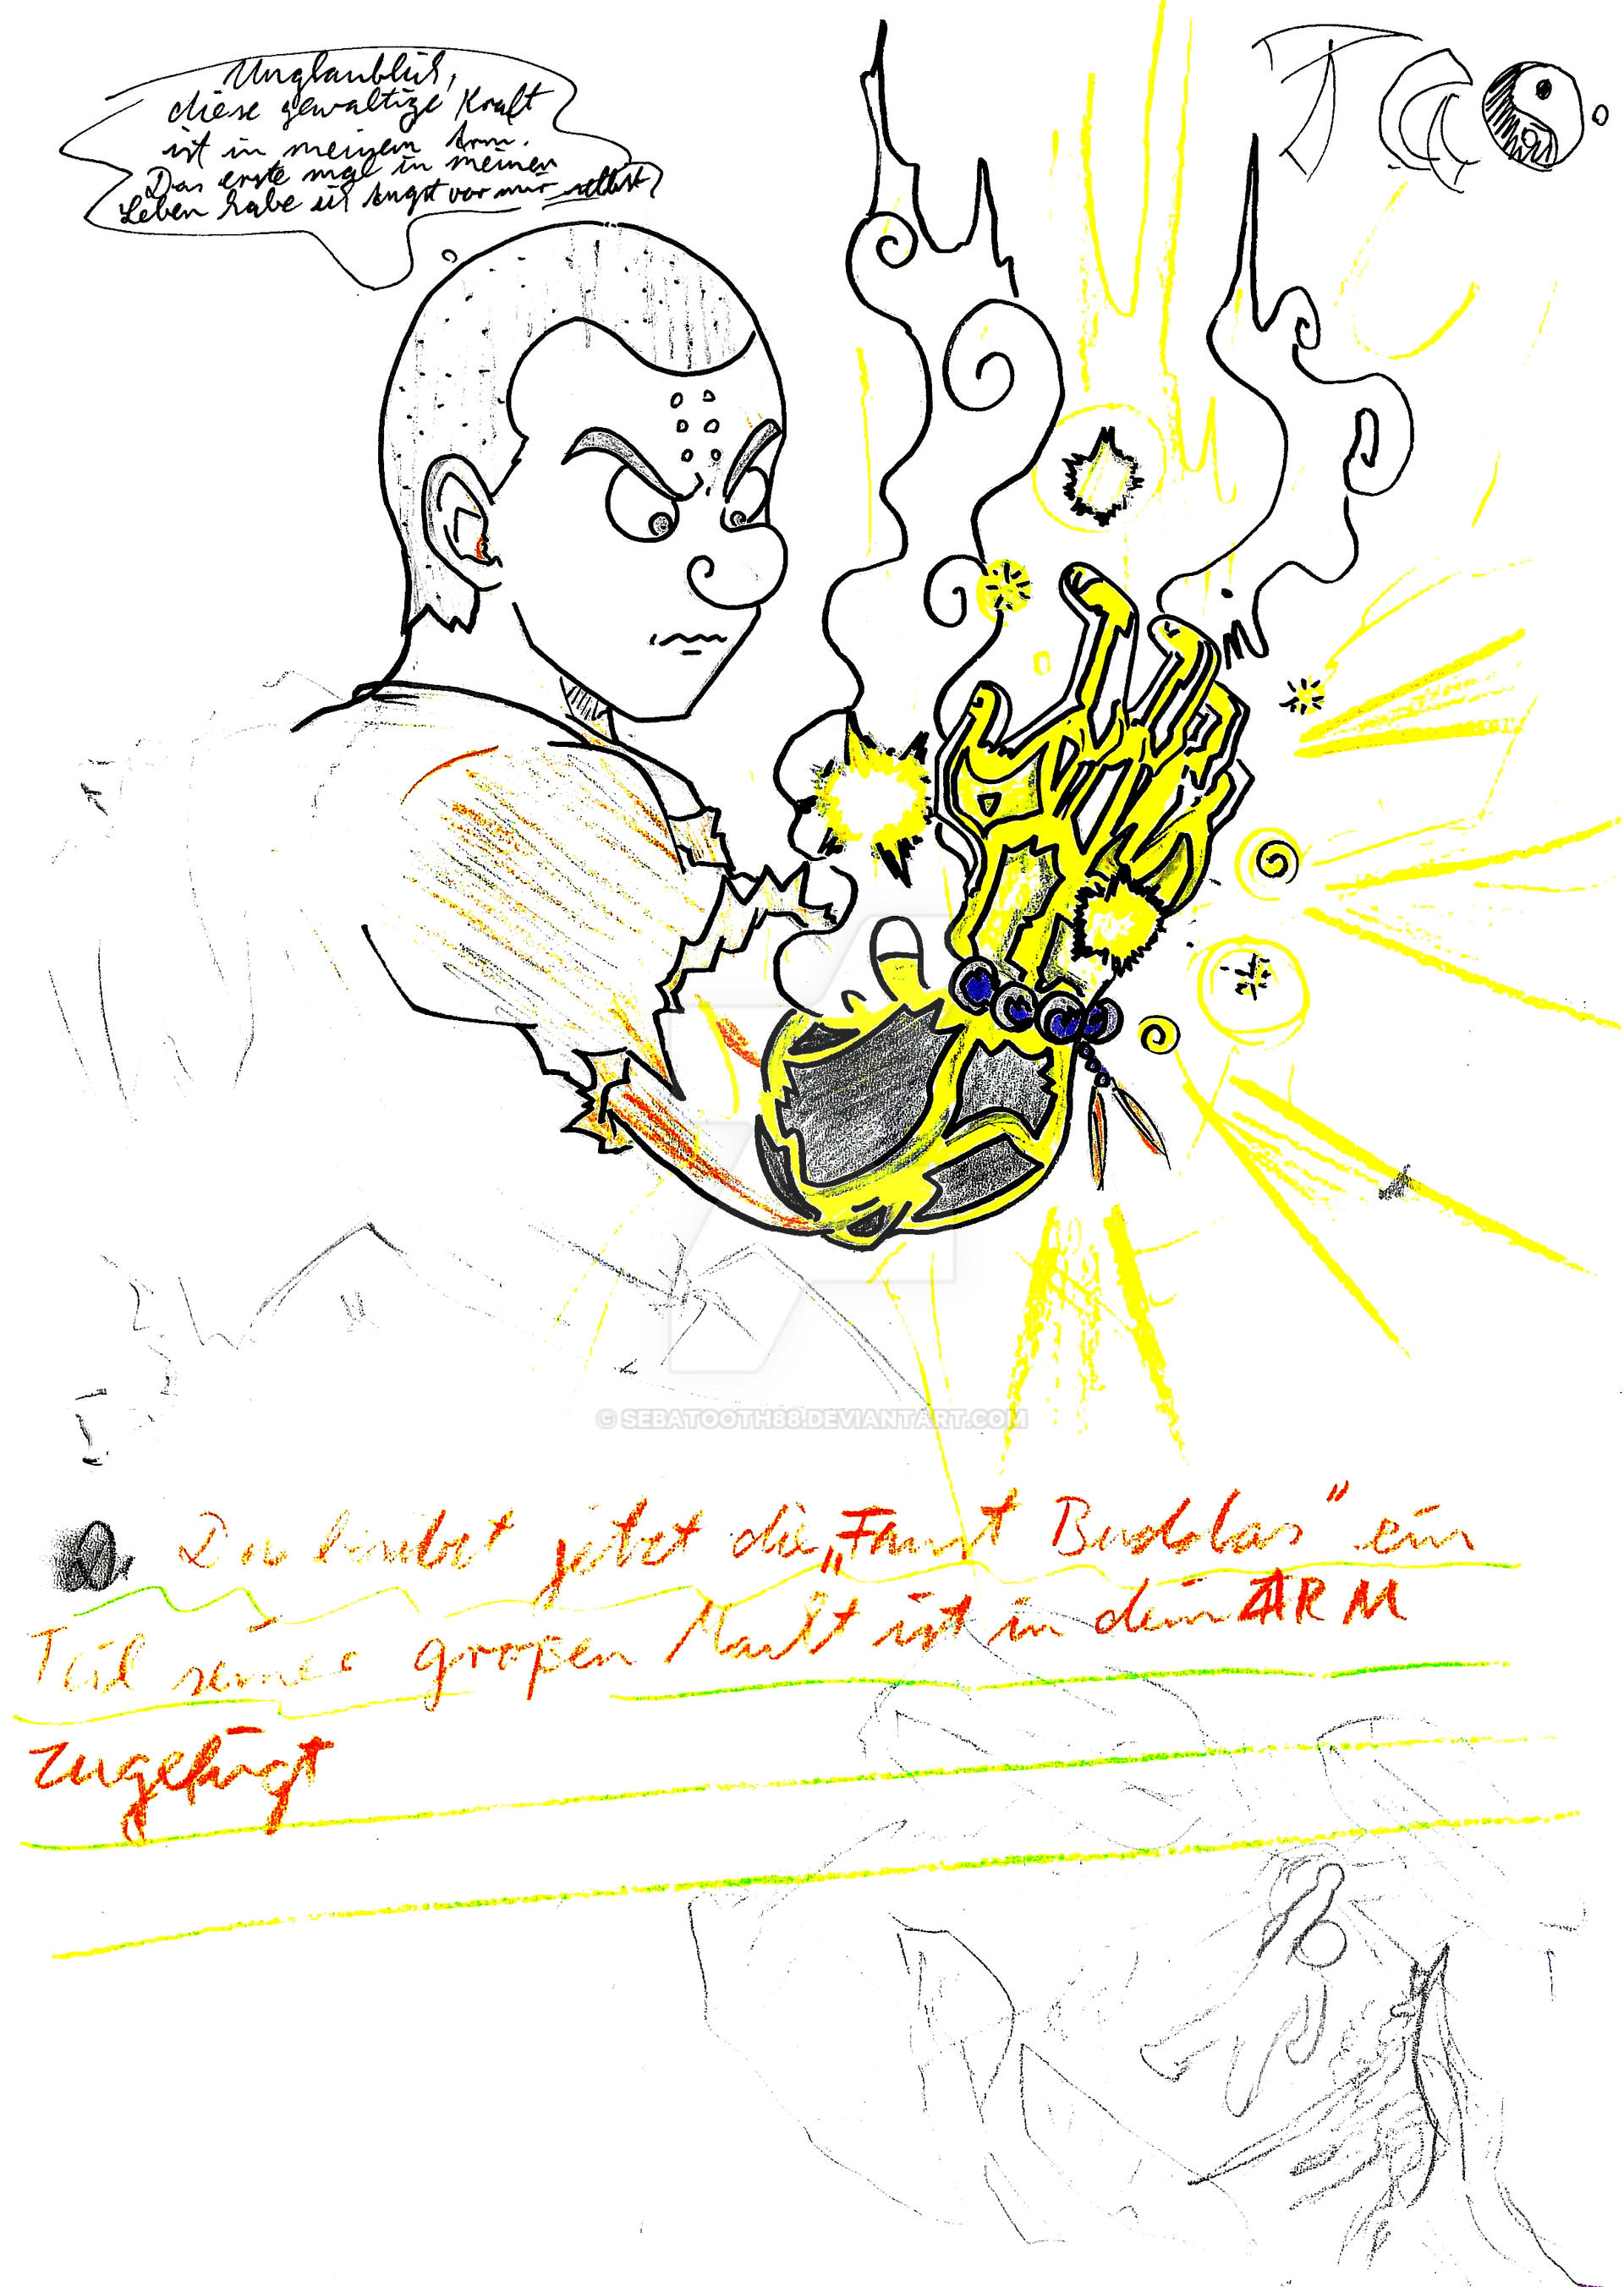 Unglaublich,
diese gewaltige Kraft
ist in meinem Arm.
Das erste mal in meinen
Leben habe ich Angst vor mir selbst
TAO
© SEBATOOTH88.DEVIANTART.COM
Du jetzt die „Faust Buddas" ein
Teil seiner großen Macht ist in dein ARM
zugefügt